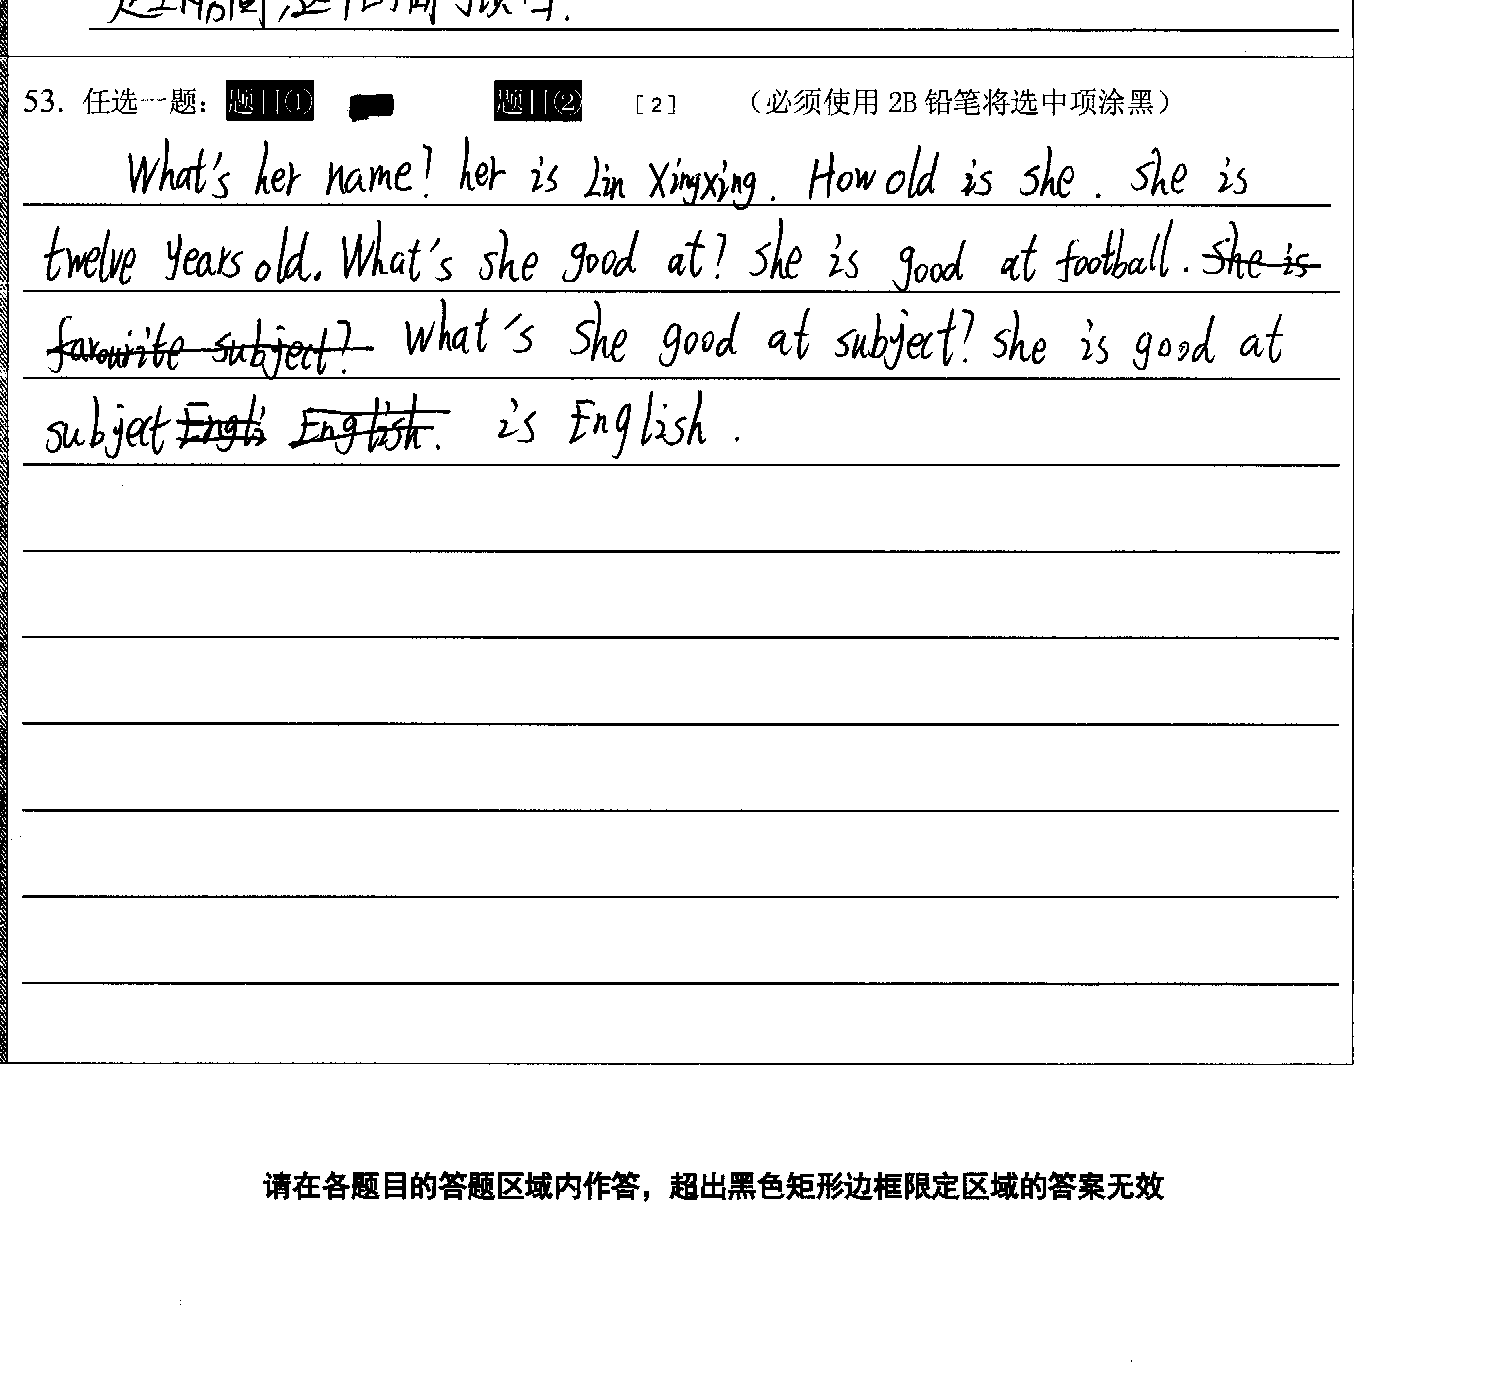 53. 任选一题： 题目① 题目② [2] （必须使用 2B 铅笔将选中项涂黑）
What's her name? her is Lin Xingxing. How old is she. She is
twelve years old. What's she good at? She is good at football. She is
favourite subject? What's she good at subject? She is good at
subject Engli English. is English.
请在各题目的答题区域内作答，超出黑色矩形边框限定区域的答案无效